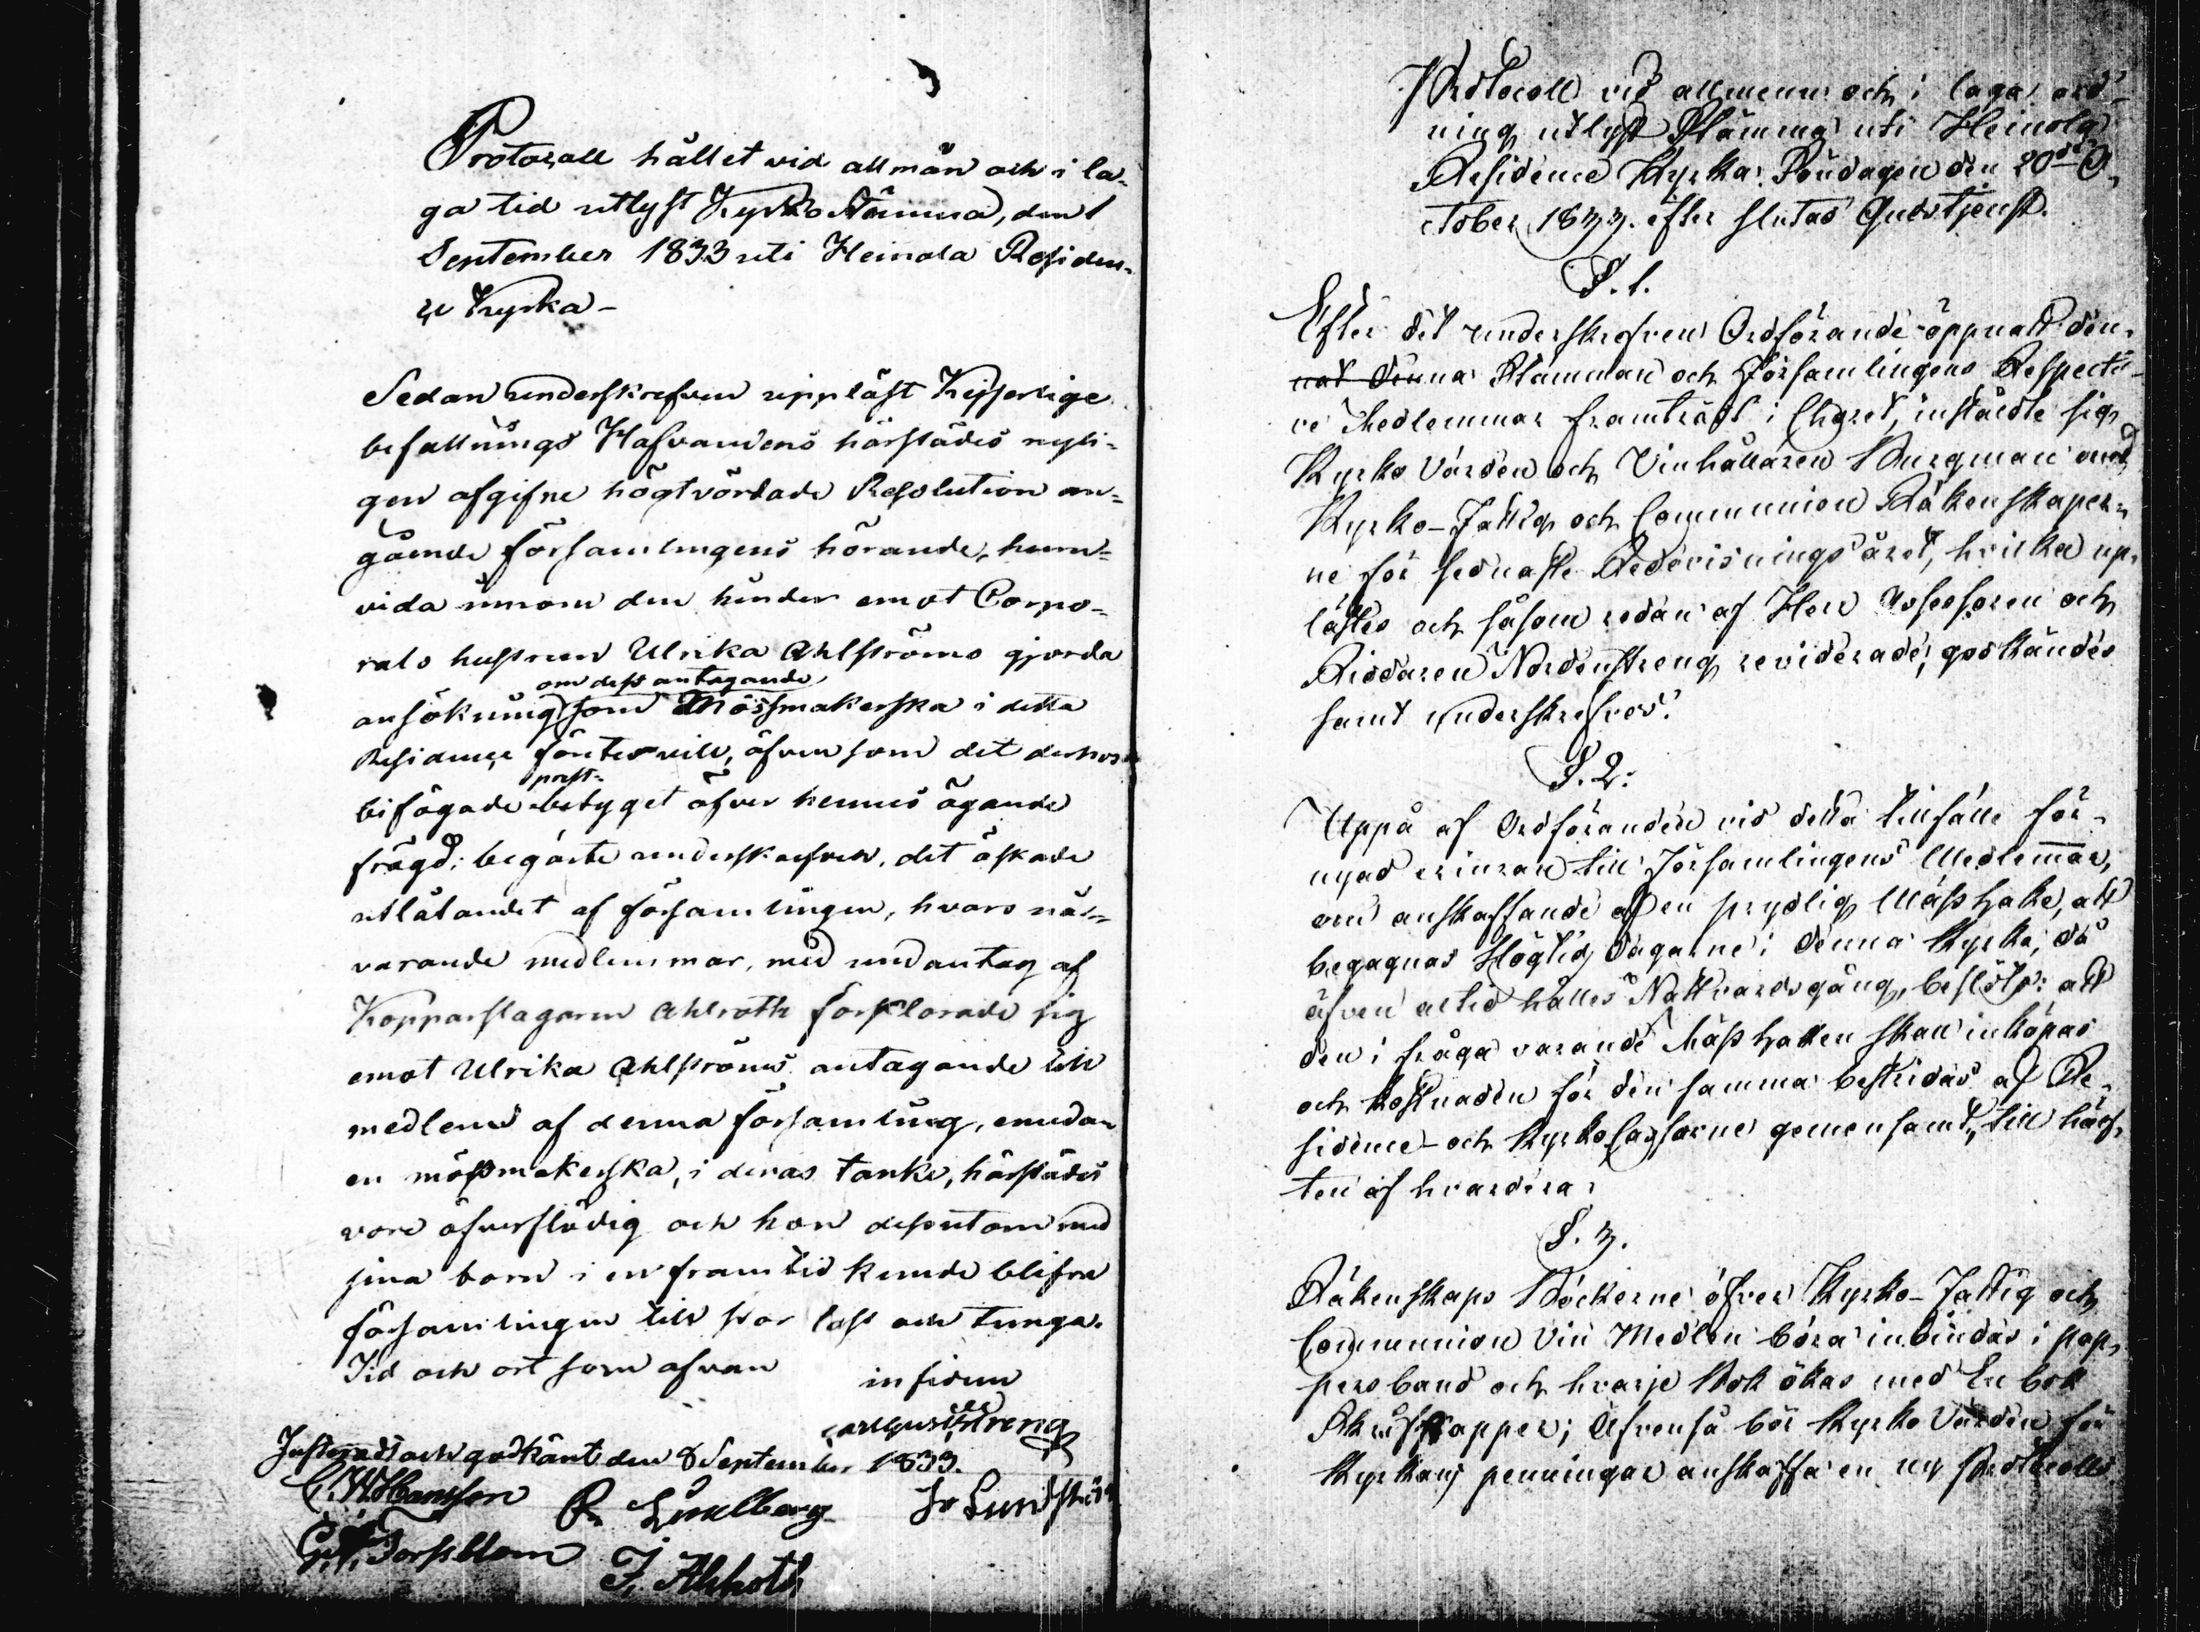 Protocoll hållet vid allmän och i la-
ga tid utlyst Kyrko Stämma, den 1
September 1833 uti Heinola Residen-
ce Kyrka -
Sedan underskrefven uppläst Kejserlige
befallnings Hafvandens härstädes nyli-
gen afgifne högtvördade Resolution an-
gående församlingens hörande, huru-
vida någon den hinder emot Corpo-
rals hustrun Ulrika Ahlströms gjorda
om dess antagande
ansökning som Mössmakerska i detta
Residence förete vill, äfvensom det derhos
prest-
bifogade betyget öfver hennes ägande
frägd; begärte underskrefven, det äskade
utlåtandet af församlingen, hvars när-
varande medlemmar, med undantag af
Kopparslagaren Ahlroth förklarade sig
emot Ulrika Ahlströms antagande till
medlem af denna församling, emedan
en mössmakerska, i deras tanke, härstädes
vore öfverflödig och hon dessutom med
sina barn i en framtid kunde blifva
församlingen till stor last och tunga.
Tid och ort som ofvan
in fidem
Justeradt och godkänt den 8 September 1833.
C. W. Hansson
R. Lindberg
J. Lundström
G. A. Forsblom
J. Ahlroth
Protocoll vid allmenn och i laga ord-
ning utlyst Stämma uti Heinola
Residence Kyrka Söndagen den 20de O-
ctober 1833. efter slutad Gudstjenst.
§. 1.
Efter det underskrefven Ordförande öppnat den-
nat denna Stämman och Församlingens Respecti-
ve Medlemmar framträdt i Choret, instälde sig
Kyrko Värden och Vinhållaren Bergman med
Kyrko-Fattig och Communion Räkenskaper-
ne för sednaste Redovisnings året, hvilka up-
lästes och såsom redan af Herr Assessoren och
Riddaren Nordenstreng reviderade, godkändes
samt underskrefvos.
§. 2.
Uppå af Ordföranden vid detta tillfälle för-
nyad erinran till Församlingens Medlemmar,
om anskaffande af en prydlig Mässhake, att
begagnas Högtids dagarne i denna Kyrka, då
äfven altid hålles Nattvardsgång, beslöts: att
den i fråga varande Mässhaken skall inköpas
och kostnaden för den samma bestridas af Re-
sidence- och Kyrko Cassorne gemensamt, till hälf-
ten af hvardera.
§. 3.
Räkenskaps Böckerne öfver Kyrko-Fattig och
Communion Vin Medlen böra inbindas i pap-
persband och hvarje Bok ökas med En bok
Skrifpapper; Äfvenså bör Kyrko Värden för
Kyrkans penningar anskaffa en ny Protocolls